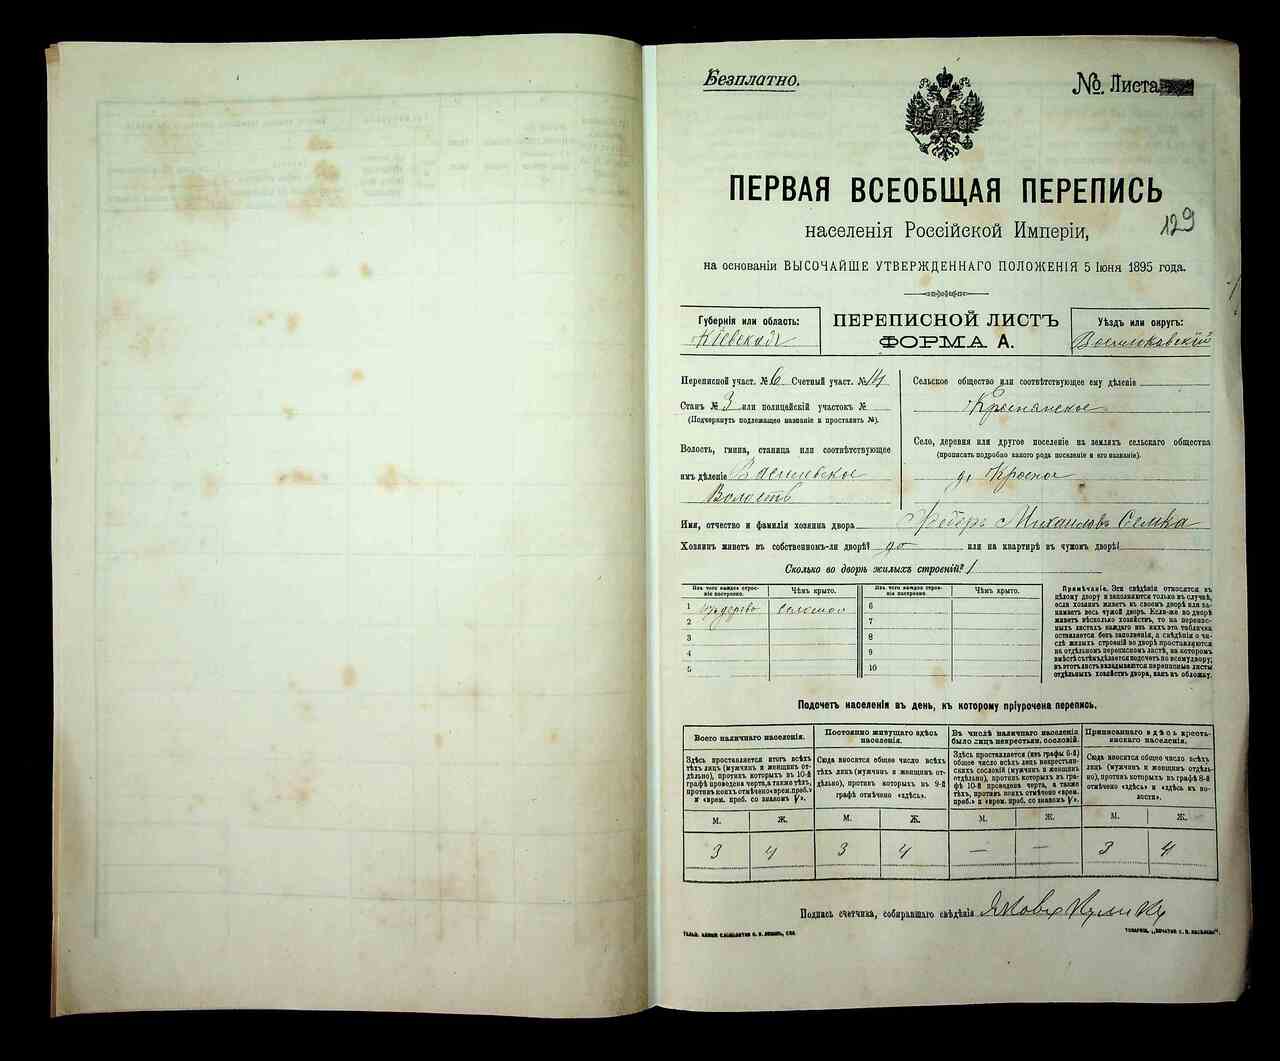 Безплатно.
№. Листа
ПЕРВАЯ ВСЕОБЩАЯ ПЕРЕПИСЬ
129
населенія Россійской Имперіи,
на основаніи ВЫСОЧАЙШЕ УТВЕРЖДЕННАГО ПОЛОЖЕНІЯ 5 Іюня 1895 года.
Губернія или область:
Кіевская
ПЕРЕПИСНОЙ ЛИСТЪ
ФОРМА А.
Уѣздъ или округъ:
Васильковскій
Переписной участ. № 6 Счетный участ. № 14
Станъ № 3 или полицейскій участокъ №
(Подчеркнуть подлежащее названіе и проставить №).
Волость, гмина, станица или соотвѣтствующее
имъ дѣленіе
Волость
Сельское общество или соотвѣтствующее ему дѣленіе
Село, деревня или другое поселеніе на земляхъ сельскаго общества
(прописать подробно какого рода поселеніе и его названіе).
Имя, отчество и фамилія хозяина двора Федоръ Михаиловъ Семка
Хозяинъ живетъ въ собственномъ-ли дворѣ? да или на квартирѣ въ чужомъ дворѣ?
Сколько во дворѣ жилыхъ строеній? 1
Изъ чего каждое строеніе построено.
Чѣмъ крыто.
Изъ чего каждое строеніе построено.
Чѣмъ крыто.
1 дерево соломой
2
3
4
5
6
7
8
9
10
Примѣчаніе. Эти свѣдѣнія относятся къ
цѣлому двору и заполняются только въ случаѣ,
если хозяинъ живетъ въ своемъ дворѣ или за-
нимаетъ весь чужой дворъ. Если-же во дворѣ
живетъ нѣсколько хозяйствъ, то на перепис-
ныхъ листахъ каждаго изъ нихъ эта табличка
оставляется безъ заполненія, а свѣдѣнія о чи-
слѣ жилыхъ строеній во дворѣ проставляются
на отдѣльномъ переписномъ листѣ, на которомъ
вмѣстѣ съ тѣмъ дѣлается подсчетъ по всему двору;
въ этотъ листъ вкладываются переписные листы
отдѣльныхъ хозяйствъ двора, какъ въ обложку.
Подсчетъ населенія въ день, къ которому пріурочена перепись.
Всего наличнаго населенія.
Постоянно живущаго здѣсь
населенія.
Въ числѣ наличнаго населенія
было лицъ некрестьян. сословій.
Приписаннаго здѣсь кресть-
янскаго населенія.
Здѣсь проставляется итогъ всѣхъ
тѣхъ лицъ (мужчинъ и женщинъ от-
дѣльно), противъ которыхъ въ 10-й
графѣ проведена черта, а также тѣхъ,
противъ коихъ отмѣчено «врем. преб.»
и «врем. преб. со знакомъ V».
Сюда вносится общее число всѣхъ
тѣхъ лицъ (мужчинъ и женщинъ от-
дѣльно), противъ которыхъ въ 9-й
графѣ отмѣчено «здѣсь».
Здѣсь проставляется (изъ графы 6-й)
общее число всѣхъ лицъ некрестьян-
скихъ сословій (мужчинъ и женщинъ
отдѣльно), противъ которыхъ въ гра-
фѣ 10-й проведена черта, а также
тѣхъ, противъ коихъ отмѣчено «врем.
преб.» и «врем. преб. со знакомъ V».
Сюда вносится общее число всѣхъ
лицъ (мужчинъ и женщинъ отдѣль-
но), противъ которыхъ въ графѣ 8-й
отмѣчено «здѣсь» и «здѣсь въ во-
лости».
М. Ж. М. Ж. М. Ж. М. Ж.
3 4 3 4 — — 3 4
Подпись счетчика, собиравшаго свѣдѣнія Яковъ